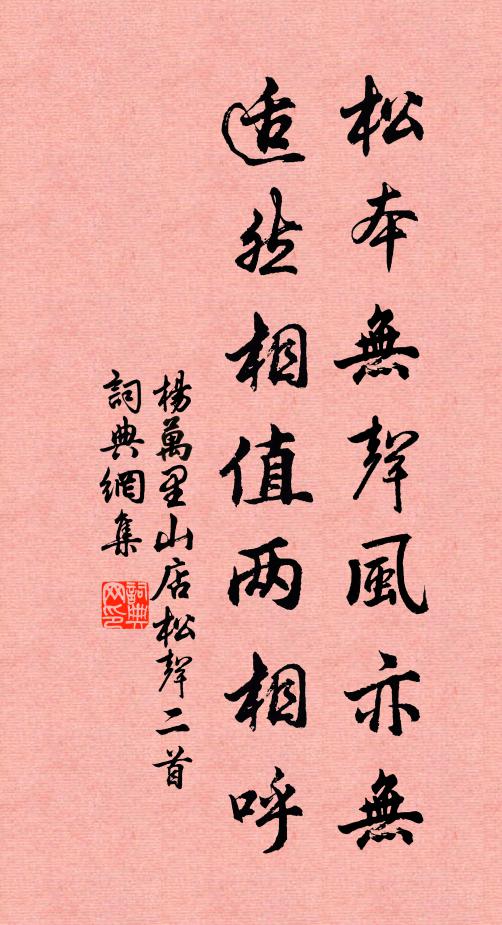 松本無聲風亦無
适然相值两相呼
楊萬里山店松聲二首
詞典網集
詞典
网印